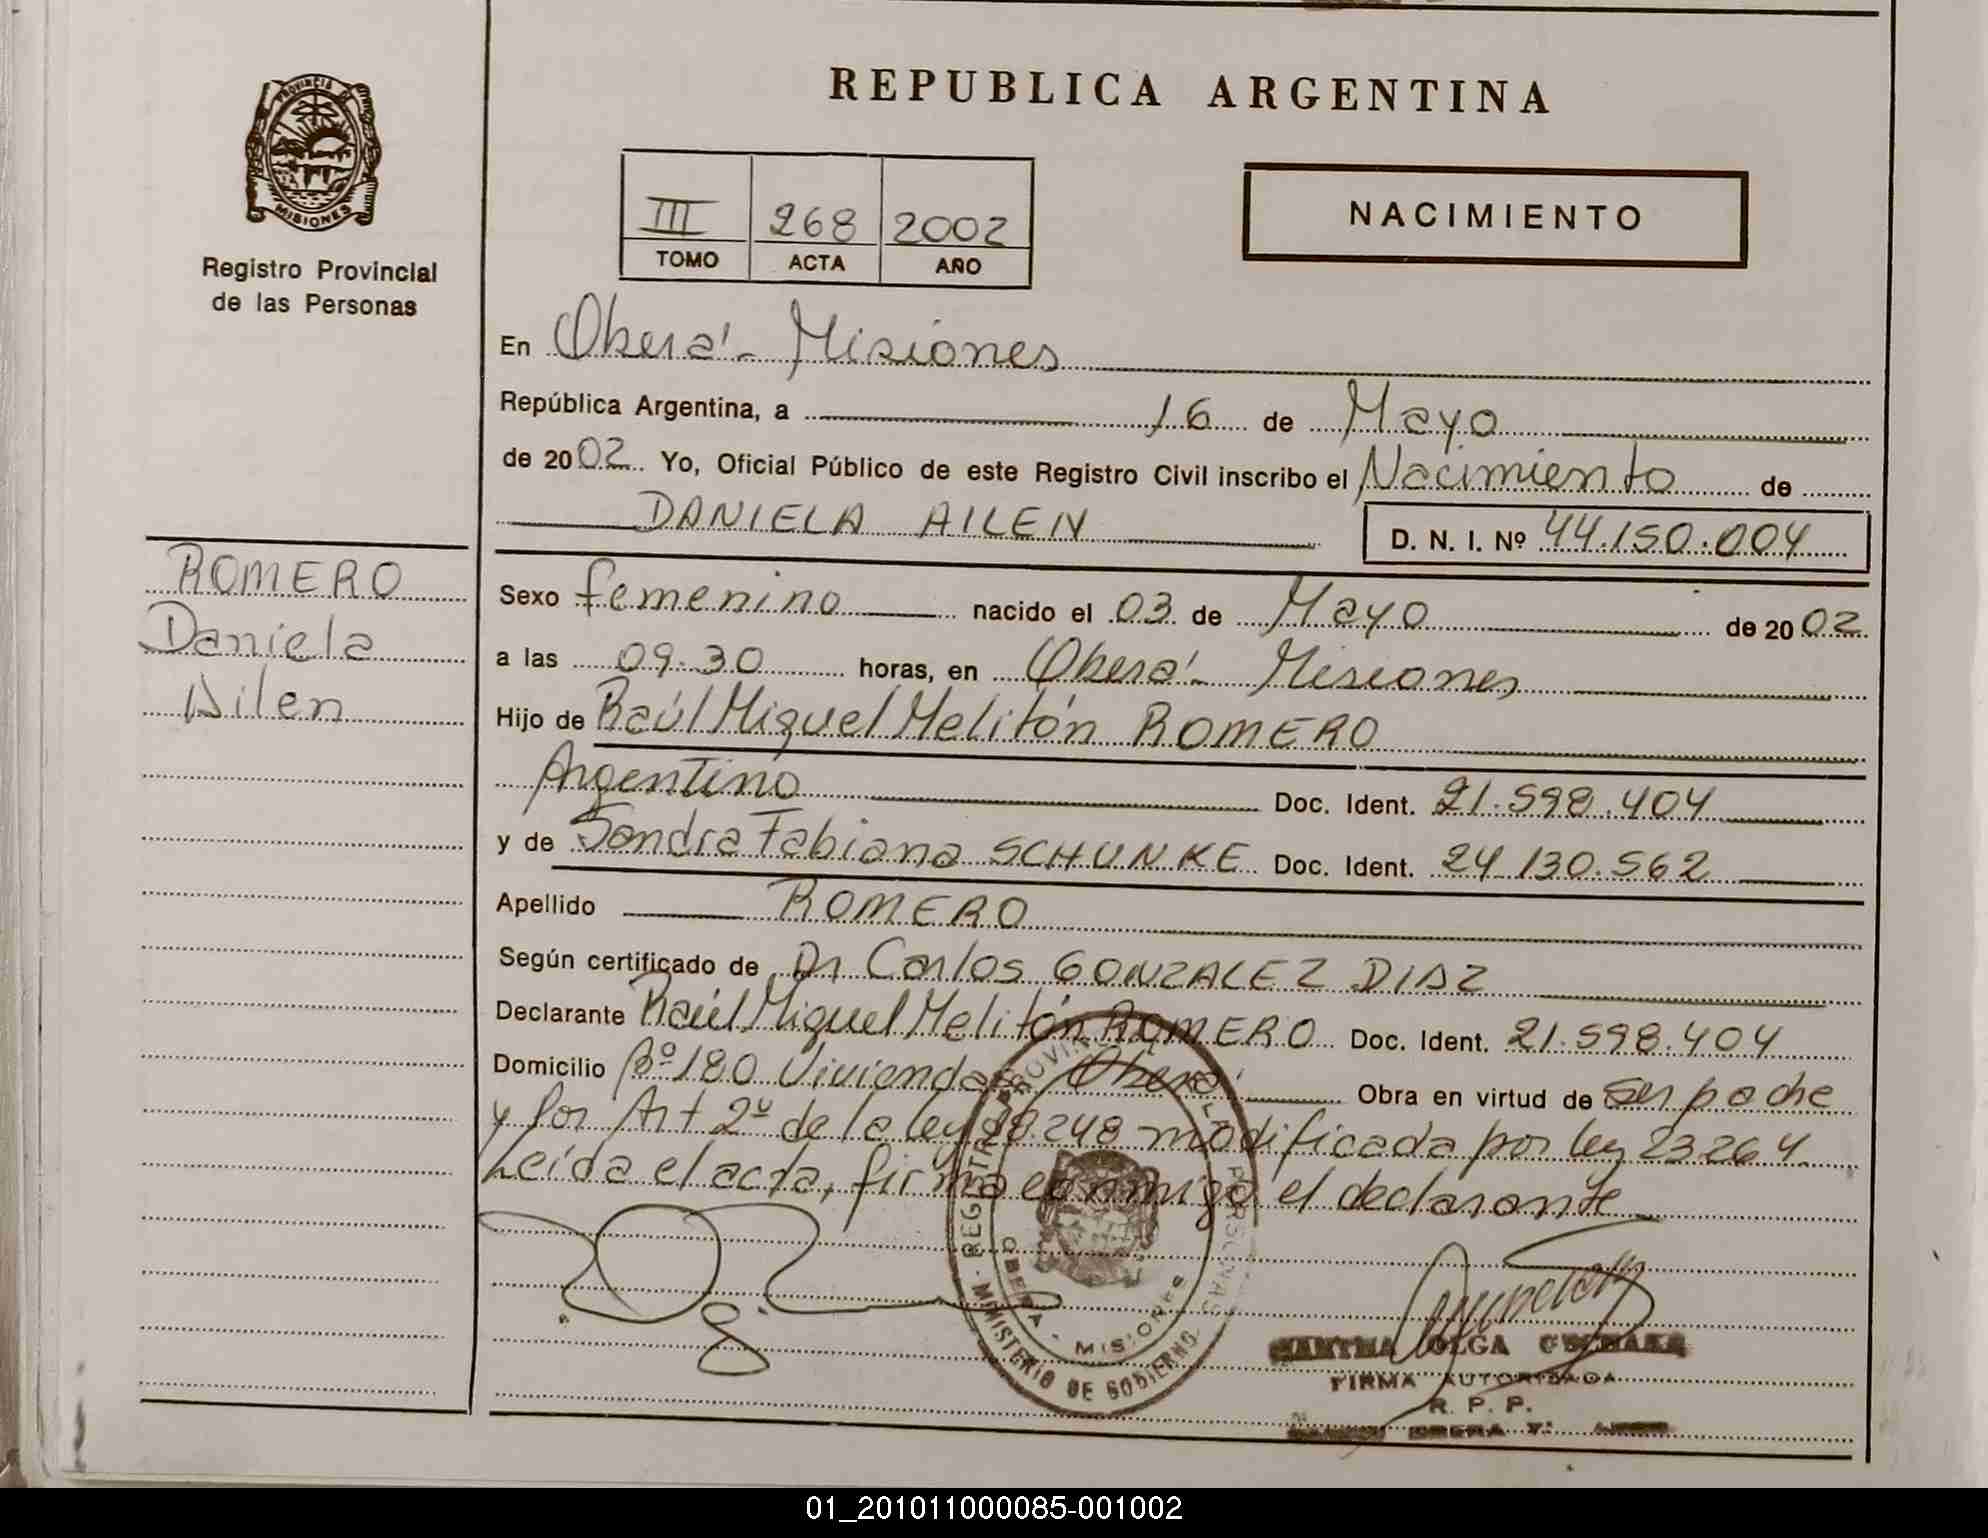 PROVINCIA DE
MISIONES
Registro Provincial
de las Personas
REPUBLICA ARGENTINA
III 268 2002
TOMO ACTA AÑO
NACIMIENTO
En Oberá - Misiones
República Argentina, a 16 de Mayo
de 2002 Yo, Oficial Público de este Registro Civil inscribo el Nacimiento de
DANIELA AILEN D. N. I. Nº 44.150.004
ROMERO
Daniela
Ailen
Sexo femenino nacido el 03 de Mayo de 2002
a las 09.30 horas, en Oberá - Misiones
Hijo de Raúl Miguel Melitón ROMERO
Argentino Doc. Ident. 21.598.404
y de Sandra Fabiana SCHUNKE Doc. Ident. 24130.562
Apellido ROMERO
Según certificado de Dr Carlos GONZALEZ DIAZ
Declarante Raúl Miguel Melitón ROMERO Doc. Ident. 21.598.404
Domicilio Bº 180 Viviendas Oberá Obra en virtud de ser padre
y por Art 2º de la ley 18.248 modificada por ley 23264
Leída el acta, firma conmigo el declarante
REGISTRO PROVINCIAL PERSONAS
OBERA - MISIONES
MINISTERIO DE GOBIERNO
MARTHA OLGA
FIRMA AUTORIZADA
R. P. P.
OBERA
01_201011000085-001002